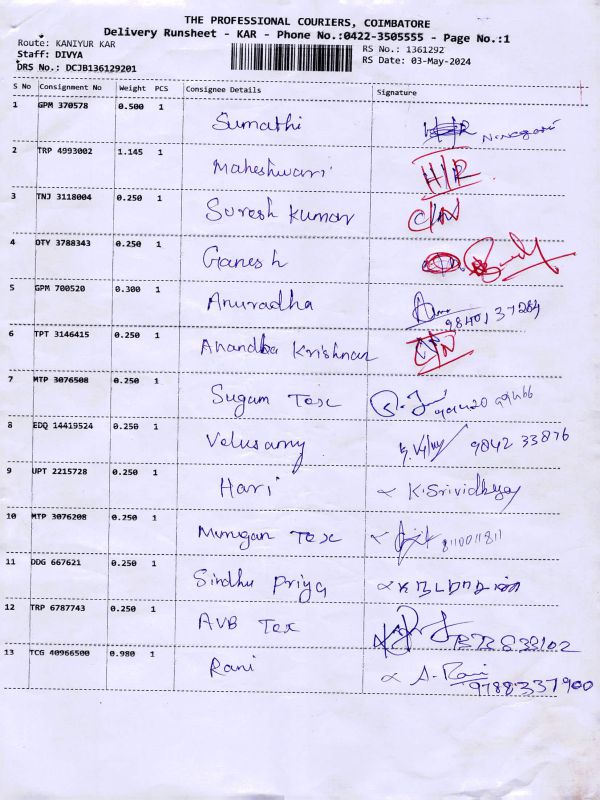 THE PROFESSIONAL COURIERS, COIMBATORE
Delivery Runsheet - KAR - Phone No.:0422-3505555 - Page No.:1
Route: KANIYUR KAR RS No.: 1361292
Staff: DIVYA RS Date: 03-May-2024
DRS No.: DCJB136129201
S No Consignment No Weight PCS Consignee Details Signature
1 GPM 370578 0.500 1 Sumathi H/R
2 TRP 4993002 1.145 1 Maheshwari H/R
3 TNJ 3118004 0.250 1 Suresh Kumar C/N
4 OTY 3788343 0.250 1 Ganesh
5 GPM 700520 0.300 1 Anuradha
98401 37284
6 TPT 3146415 0.250 1 Anandha Krishnan
7 MTP 3076508 0.250 1 Sugam Tex
8 EDQ 14419524 0.250 1 Velusamy 9842 33876
9 UPT 2215728 0.250 1 Hari K. Srividhya
10 MTP 3076208 0.250 1 Murugan Tex 8110011811
11 DDG 667621 0.250 1 Sindhu Priya
12 TRP 6787743 0.250 1 AVB Tex
13 TCG 40966500 0.980 1 Rani A. Rani
9788337900